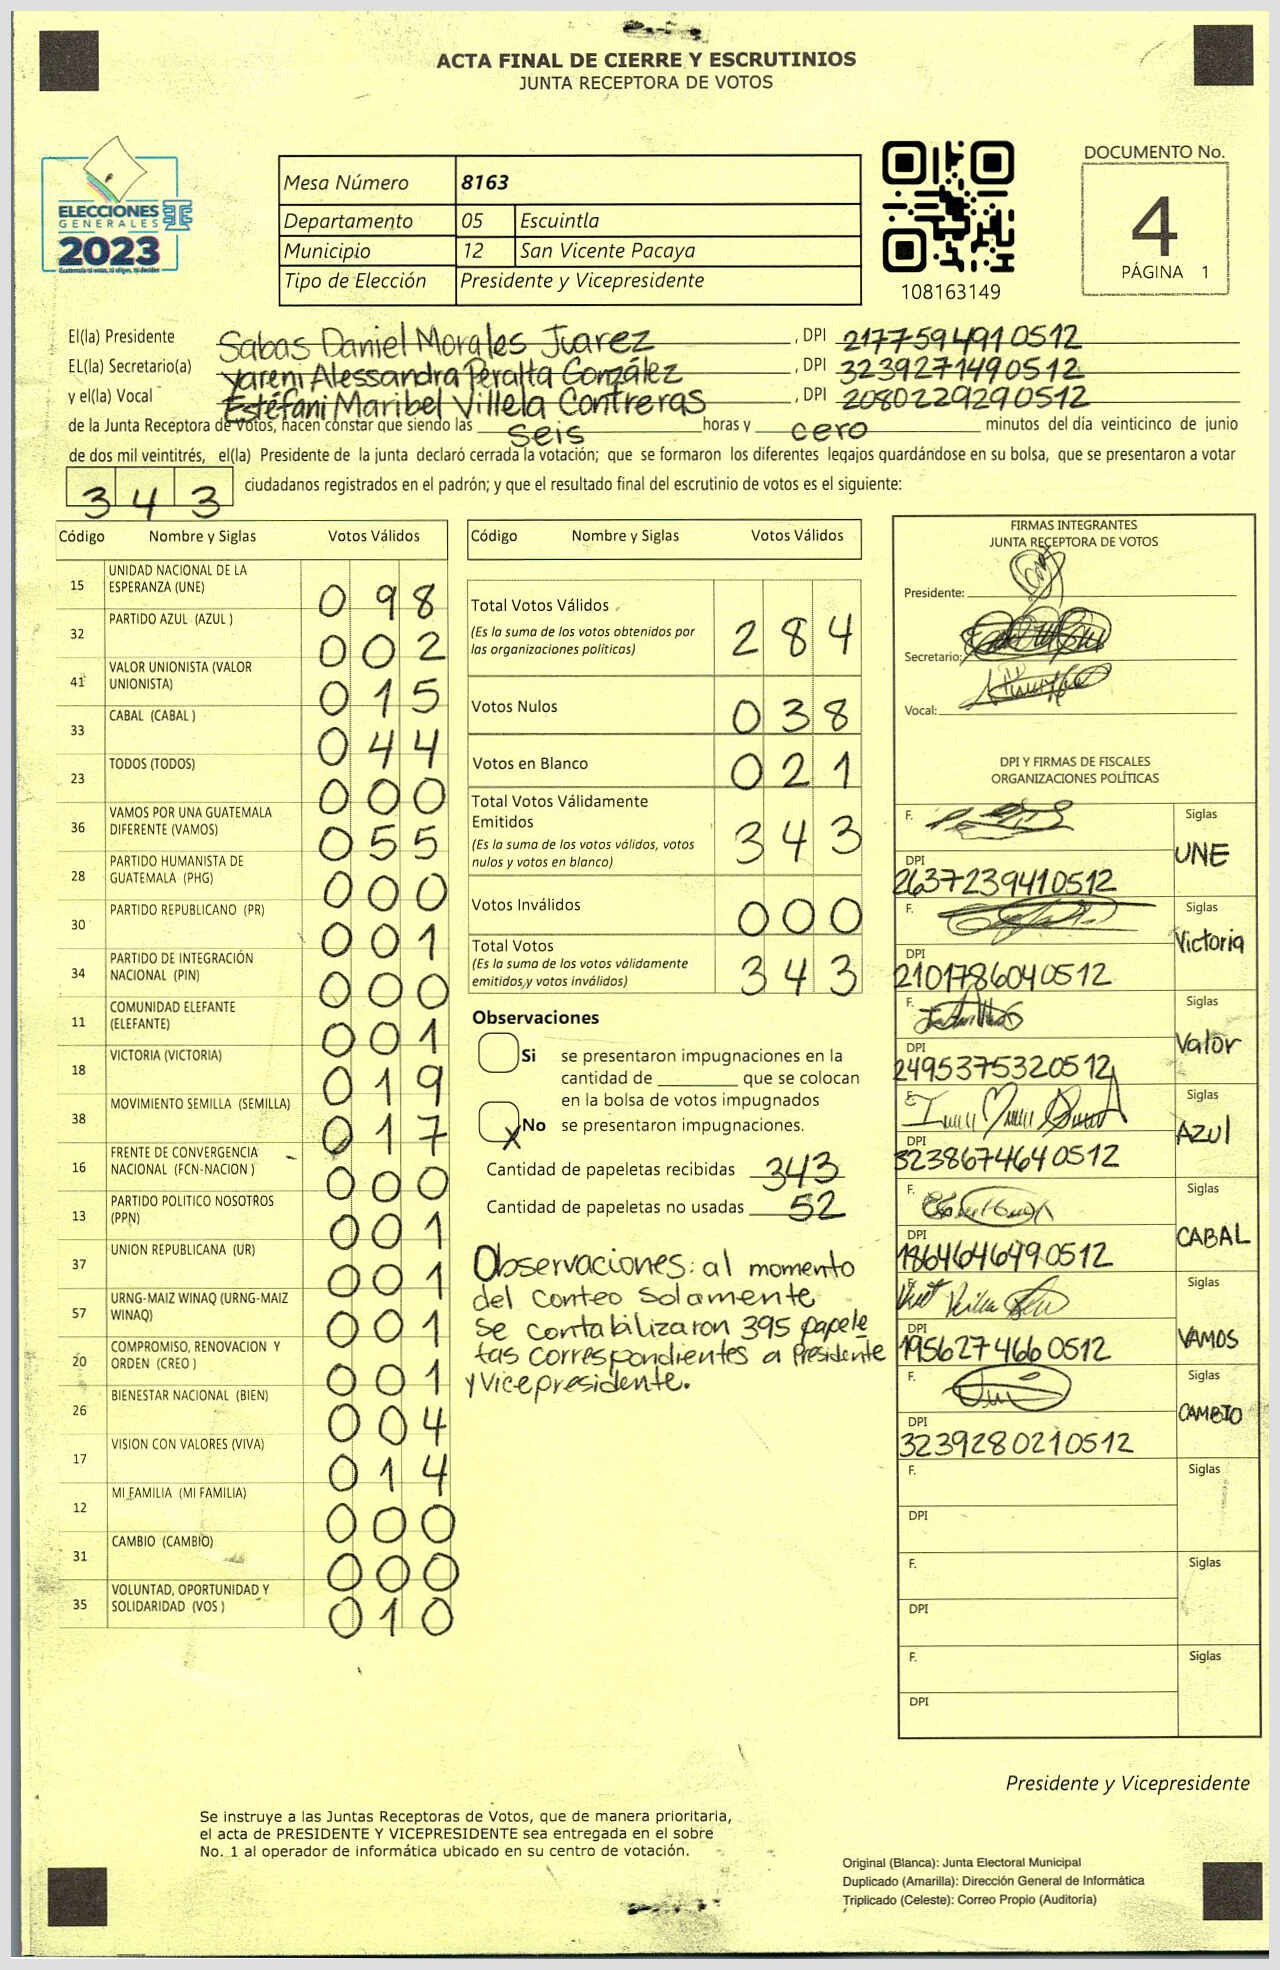 ACTA FINAL DE CIERRE Y ESCRUTINIOS
JUNTA RECEPTORA DE VOTOS
ELECCIONES
GENERALES
2023
Mesa Número 8163
Departamento 05 Escuintla
Municipio 12 San Vicente Pacaya
Tipo de Elección Presidente y Vicepresidente
108163149
DOCUMENTO No.
4
PÁGINA 1
El(la) Presidente Sabas Daniel Morales Juarez, DPI 2177594910512
EL(la) Secretario(a) Yareni Alessandra Peralta González, DPI 3239271490512
y el(la) Vocal Estéfani Maribel Villela Contreras, DPI 2080229290512
de la Junta Receptora de Votos, hacen constar que siendo las seis horas y cero minutos del día veinticinco de junio
de dos mil veintitrés, el(la) Presidente de la junta declaró cerrada la votación; que se formaron los diferentes legajos guardándose en su bolsa, que se presentaron a votar
343 ciudadanos registrados en el padrón; y que el resultado final del escrutinio de votos es el siguiente:
Código Nombre y Siglas Votos Válidos
15 UNIDAD NACIONAL DE LA ESPERANZA (UNE) 098
32 PARTIDO AZUL (AZUL ) 002
41 VALOR UNIONISTA (VALOR UNIONISTA) 015
33 CABAL (CABAL ) 044
23 TODOS (TODOS) 000
36 VAMOS POR UNA GUATEMALA DIFERENTE (VAMOS) 055
28 PARTIDO HUMANISTA DE GUATEMALA (PHG) 000
30 PARTIDO REPUBLICANO (PR) 001
34 PARTIDO DE INTEGRACIÓN NACIONAL (PIN) 000
11 COMUNIDAD ELEFANTE (ELEFANTE) 001
18 VICTORIA (VICTORIA) 019
38 MOVIMIENTO SEMILLA (SEMILLA) 017
16 FRENTE DE CONVERGENCIA NACIONAL (FCN-NACION ) 000
13 PARTIDO POLITICO NOSOTROS (PPN) 001
37 UNION REPUBLICANA (UR) 001
57 URNG-MAIZ WINAQ (URNG-MAIZ WINAQ) 001
20 COMPROMISO, RENOVACION Y ORDEN (CREO ) 001
26 BIENESTAR NACIONAL (BIEN) 004
17 VISION CON VALORES (VIVA) 014
12 MI FAMILIA (MI FAMILIA) 000
31 CAMBIO (CAMBIO) 000
35 VOLUNTAD, OPORTUNIDAD Y SOLIDARIDAD (VOS ) 010
Código Nombre y Siglas Votos Válidos
Total Votos Válidos 284
(Es la suma de los votos obtenidos por
las organizaciones politicas)
Votos Nulos 038
Votos en Blanco 021
Total Votos Válidamente
Emitidos 343
(Es la suma de los votos válidos, votos
nulos y votos en blanco)
Votos Inválidos 000
Total Votos 343
(Es la suma de los votos válidamente
emitidos y votos inválidos)
Observaciones
Si se presentaron impugnaciones en la
cantidad de ________ que se colocan
en la bolsa de votos impugnados
X No se presentaron impugnaciones.
Cantidad de papeletas recibidas 343
Cantidad de papeletas no usadas 52
Observaciones: al momento
del conteo solamente
se contabilizaron 395 papele
tas correspondientes a Presidente
y Vicepresidente.
FIRMAS INTEGRANTES
JUNTA RECEPTORA DE VOTOS
Presidente:
Secretario:
Vocal:
DPI Y FIRMAS DE FISCALES
ORGANIZACIONES POLÍTICAS
F. Siglas UNE
DPI 2637239410512
F. Siglas Victoria
DPI 2101786040512
F. Siglas Valor
DPI 2495375320512
F. Siglas Azul
DPI 3238674640512
F. Siglas CABAL
DPI 1864646490512
F. Siglas VAMOS
DPI 1956274660512
F. Siglas CAMBIO
DPI 3239280210512
F. Siglas
DPI
F. Siglas
DPI
F. Siglas
DPI
Presidente y Vicepresidente
Se instruye a las Juntas Receptoras de Votos, que de manera prioritaria,
el acta de PRESIDENTE Y VICEPRESIDENTE sea entregada en el sobre
No. 1 al operador de informática ubicado en su centro de votación.
Original (Blanca): Junta Electoral Municipal
Duplicado (Amarilla): Dirección General de Informática
Triplicado (Celeste): Correo Propio (Auditoría)